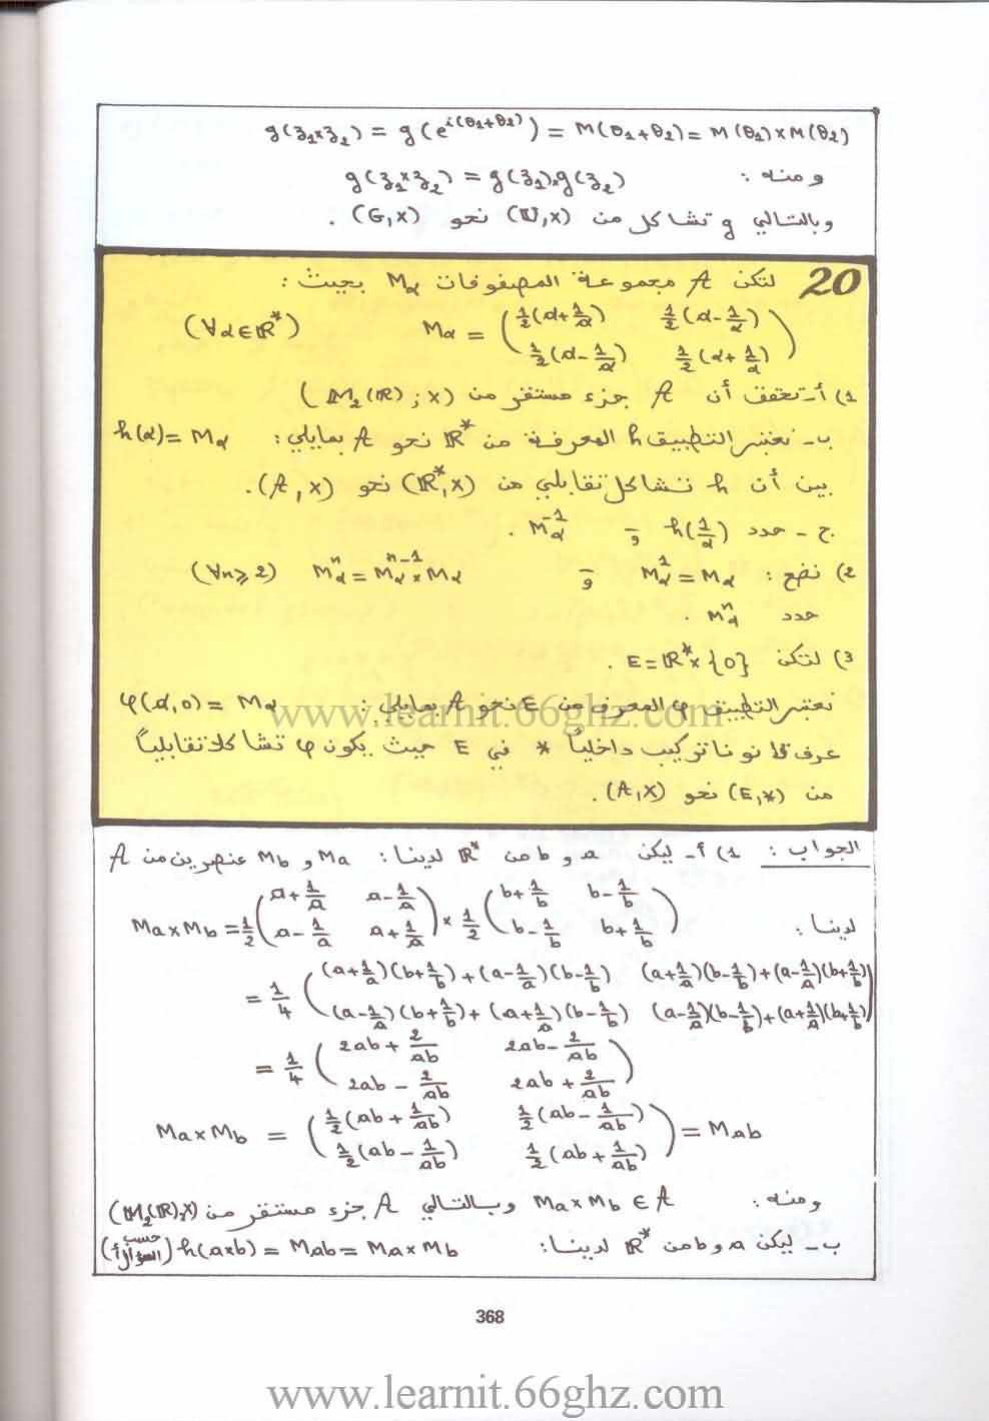 g(z₁×z₂) = g(e^{i(θ₁+θ₂)}) = M(θ₁+θ₂) = M(θ₁)×M(θ₂)
ومنه : g(z₁×z₂) = g(z₁)×g(z₂)
وبالتالي g تشاكل من (U,×) نحو (G,×) .
20 لتكن A مجموعة المصفوفات M_α بحيث :
M_α = ( ½(α+1/α) ½(α-1/α) ; ½(α-1/α) ½(α+1/α) ) (∀α∈ℝ*)
1) أ- تحقق أن A جزء مستقر من (M₂(ℝ) ; ×)
ب- نعتبر التطبيق h المعرفة من ℝ* نحو A بمايلي : h(α) = M_α
بين أن h تشاكل تقابلي من (ℝ*,×) نحو (A,×).
ج - حدد h(1/α) و M_α^{-1} .
2) نضع : M_α^1 = M_α و M_α^n = M_α^{n-1} × M_α (∀n≥2)
حدد M_α^n .
3) لتكن E = ℝ*×{0} .
نعتبر التطبيق φ المعرف من E نحو A بمايلي : φ(α,0) = M_α
عرف قانونا تركيب داخلياً * في E حيث يكون φ تشاكلا تقابلياً
من (E,*) نحو (A,×).
الجواب : 1) أ- ليكن a و b من ℝ* لدينا : Ma و Mb عنصرين من A
لدينا : Ma×Mb = ½( a+1/a a-1/a ; a-1/a a+1/a ) × ½( b+1/b b-1/b ; b-1/b b+1/b )
= ¼( (a+1/a)(b+1/b)+(a-1/a)(b-1/b) (a+1/a)(b-1/b)+(a-1/a)(b+1/b) ; (a-1/a)(b+1/b)+(a+1/a)(b-1/b) (a-1/a)(b-1/b)+(a+1/a)(b+1/b) )
= ¼( 2ab+2/ab 2ab-2/ab ; 2ab-2/ab 2ab+2/ab )
Ma×Mb = ( ½(ab+1/ab) ½(ab-1/ab) ; ½(ab-1/ab) ½(ab+1/ab) ) = Mab
ومنه : Ma×Mb ∈ A وبالتالي A جزء مستقر من (M₂(ℝ),×)
ب- ليكن a و b من ℝ* لدينا : h(a×b) = Mab = Ma×Mb (حسب السؤال أ)
368
www.learnit.66ghz.com
www.learnit.66ghz.com